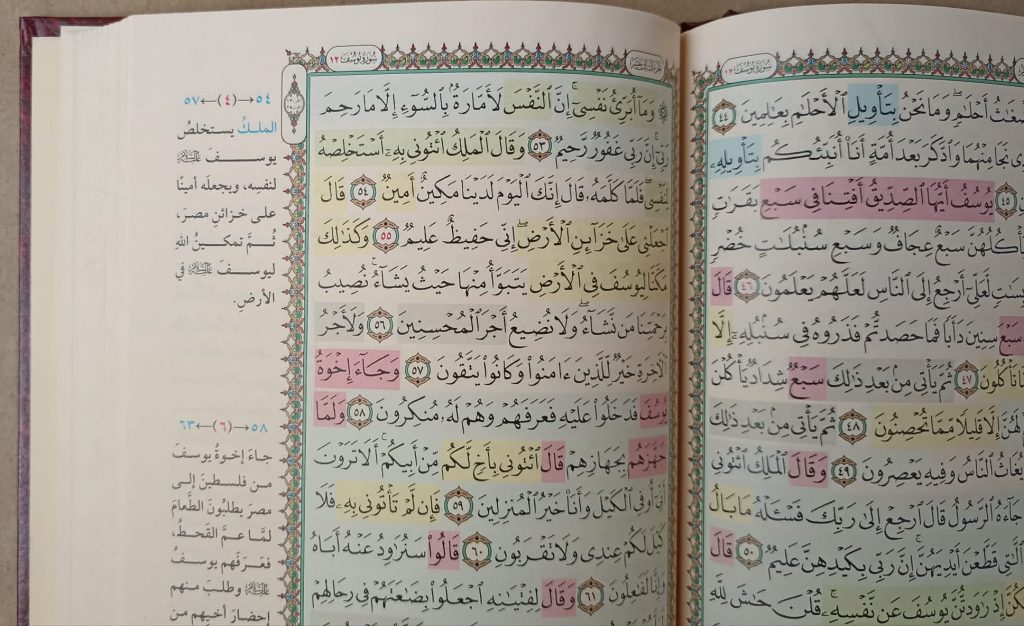 سُورَةُ يُوسُفَ ١٢
أَحْلَٰمٖۖ وَمَا نَحْنُ بِتَأْوِيلِ ٱلْأَحْلَٰمِ بِعَٰلِمِينَ ٤٤
نَجَا مِنْهُمَا وَٱدَّكَرَ بَعْدَ أُمَّةٍ أَنَا۠ أُنَبِّئُكُم بِتَأْوِيلِهِۦ
٤٥ يُوسُفُ أَيُّهَا ٱلصِّدِّيقُ أَفْتِنَا فِي سَبْعِ بَقَرَٰتٖ
يَأْكُلُهُنَّ سَبْعٌ عِجَافٞ وَسَبْعِ سُنۢبُلَٰتٍ خُضْرٖ
لَّعَلِّيٓ أَرْجِعُ إِلَى ٱلنَّاسِ لَعَلَّهُمْ يَعْلَمُونَ ٤٦ قَالَ
سَبْعَ سِنِينَ دَأَبٗا فَمَا حَصَدتُّمْ فَذَرُوهُ فِي سُنۢبُلِهِۦٓ إِلَّا
تَأْكُلُونَ ٤٧ ثُمَّ يَأْتِي مِنۢ بَعْدِ ذَٰلِكَ سَبْعٞ شِدَادٞ يَأْكُلْنَ
لَهُنَّ إِلَّا قَلِيلٗا مِّمَّا تُحْصِنُونَ ٤٨ ثُمَّ يَأْتِي مِنۢ بَعْدِ ذَٰلِكَ
يُغَاثُ ٱلنَّاسُ وَفِيهِ يَعْصِرُونَ ٤٩ وَقَالَ ٱلْمَلِكُ ٱئْتُونِي
جَآءَهُ ٱلرَّسُولُ قَالَ ٱرْجِعْ إِلَىٰ رَبِّكَ فَسْـَٔلْهُ مَا بَالُ
ٱلَّٰتِي قَطَّعْنَ أَيْدِيَهُنَّۚ إِنَّ رَبِّي بِكَيْدِهِنَّ عَلِيمٞ ٥٠ قَالَ
إِذْ رَٰوَدتُّنَّ يُوسُفَ عَن نَّفْسِهِۦۚ قُلْنَ حَٰشَ لِلَّهِ
الجزء الثالث عشر
سُورَةُ يُوسُفَ ١٢
۞ وَمَآ أُبَرِّئُ نَفْسِيٓۚ إِنَّ ٱلنَّفْسَ لَأَمَّارَةُۢ بِٱلسُّوٓءِ إِلَّا مَا رَحِمَ
رَبِّيٓۚ إِنَّ رَبِّي غَفُورٞ رَّحِيمٞ ٥٣ وَقَالَ ٱلْمَلِكُ ٱئْتُونِي بِهِۦٓ أَسْتَخْلِصْهُ
لِنَفْسِيۖ فَلَمَّا كَلَّمَهُۥ قَالَ إِنَّكَ ٱلْيَوْمَ لَدَيْنَا مَكِينٌ أَمِينٞ ٥٤ قَالَ
ٱجْعَلْنِي عَلَىٰ خَزَآئِنِ ٱلْأَرْضِۖ إِنِّي حَفِيظٌ عَلِيمٞ ٥٥ وَكَذَٰلِكَ
مَكَّنَّا لِيُوسُفَ فِي ٱلْأَرْضِ يَتَبَوَّأُ مِنْهَا حَيْثُ يَشَآءُۚ نُصِيبُ
بِرَحْمَتِنَا مَن نَّشَآءُۖ وَلَا نُضِيعُ أَجْرَ ٱلْمُحْسِنِينَ ٥٦ وَلَأَجْرُ
ٱلْأٓخِرَةِ خَيْرٞ لِّلَّذِينَ ءَامَنُوا۟ وَكَانُوا۟ يَتَّقُونَ ٥٧ وَجَآءَ إِخْوَةُ
يُوسُفَ فَدَخَلُوا۟ عَلَيْهِ فَعَرَفَهُمْ وَهُمْ لَهُۥ مُنكِرُونَ ٥٨ وَلَمَّا
جَهَّزَهُم بِجَهَازِهِمْ قَالَ ٱئْتُونِي بِأَخٖ لَّكُم مِّنْ أَبِيكُمْۚ أَلَا تَرَوْنَ
أَنِّيٓ أُوفِي ٱلْكَيْلَ وَأَنَا۠ خَيْرُ ٱلْمُنزِلِينَ ٥٩ فَإِن لَّمْ تَأْتُونِي بِهِۦ فَلَا
كَيْلَ لَكُمْ عِندِي وَلَا تَقْرَبُونِ ٦٠ قَالُوا۟ سَنُرَٰوِدُ عَنْهُ أَبَاهُ
وَإِنَّا لَفَٰعِلُونَ ٦١ وَقَالَ لِفِتْيَٰنِهِ ٱجْعَلُوا۟ بِضَٰعَتَهُمْ فِي رِحَالِهِمْ
٥٤→(٤)←٥٧
الملكُ يستخلصُ
يوسفَ عليه السلام
لنفسِه، ويجعلُه أمينًا
على خزائنِ مصرَ،
ثُمَّ تمكينُ اللهِ
ليوسفَ عليه السلام في
الأرضِ.
٥٨→(٦)←٦٣
جاءَ إخوةُ يوسفَ
من فلسطينَ إلى
مصرَ يطلبُونَ الطَّعامَ
لمَّا عمَّ القَحطُ،
فعَرَفَهم يوسفُ
عليه السلام وطلبَ منهم
إحضارَ أخيهم من